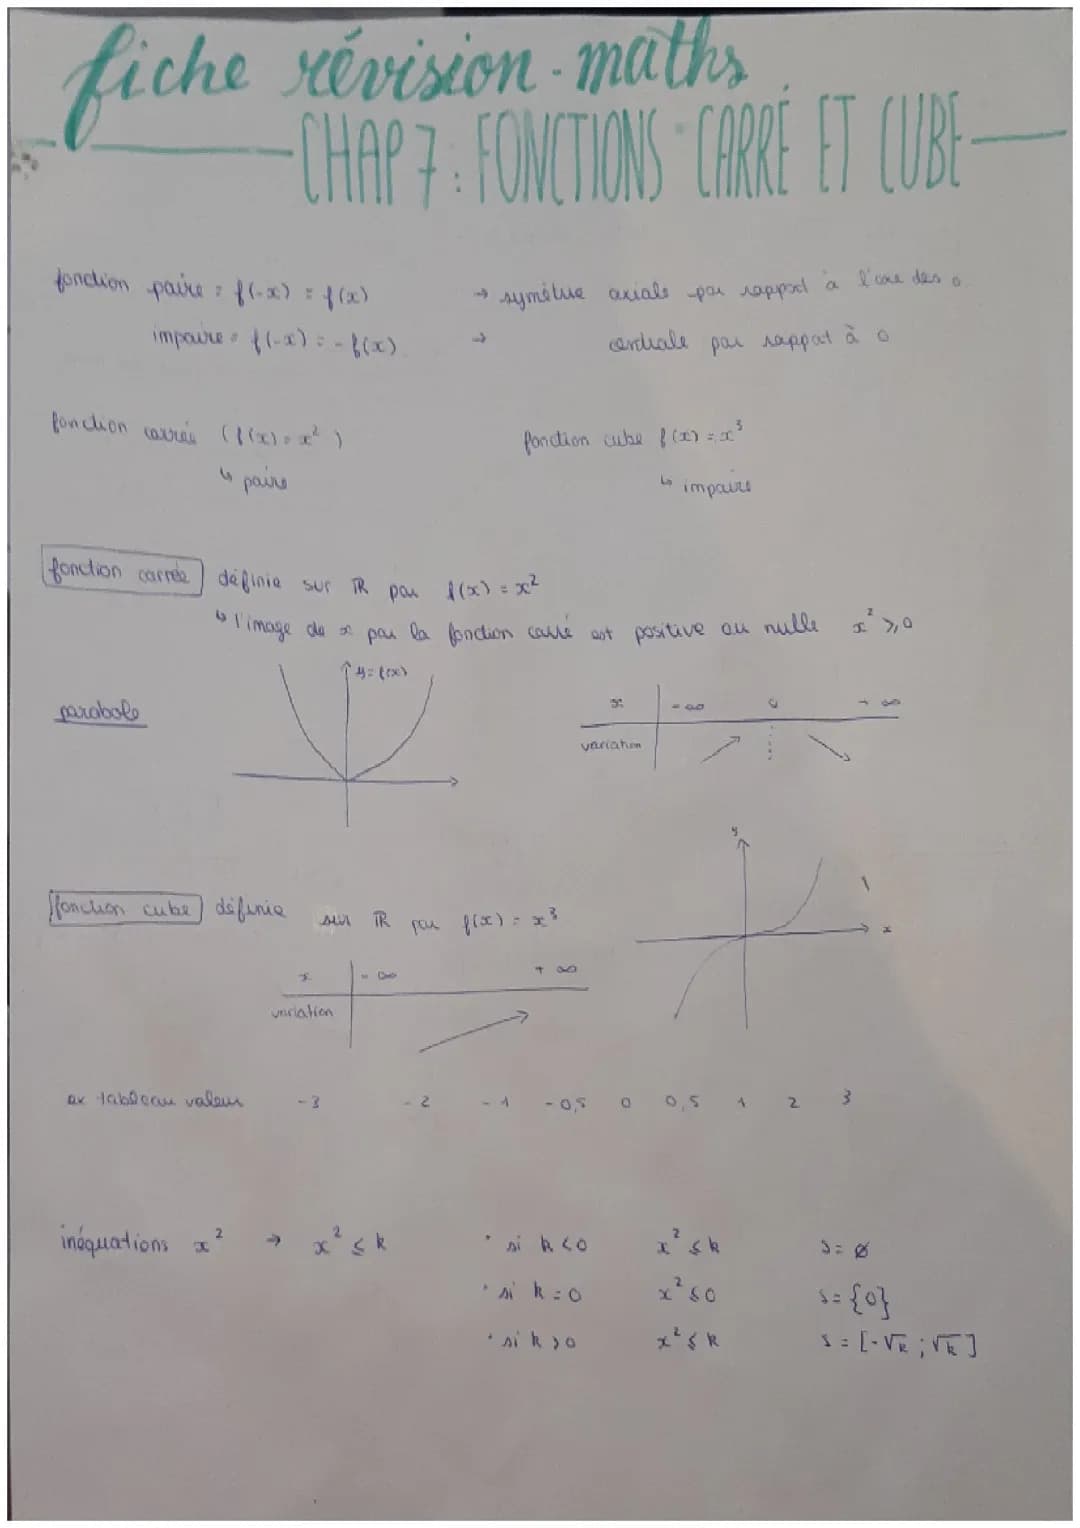 fiche révision - maths
CHAP 7 : FONCTIONS CARRÉ ET CUBE
fonction paire = f(-x) = f(x) → symétrie axiale par rapport à l'axe des o
impaire = f(-x) = - f(x) → centrale par rapport à o
fonction carrée (f(x) = x²) fonction cube f(x) = x³
↳ paire ↳ impaire
fonction carrée définie sur ℝ par f(x) = x²
↳ l'image de x par la fonction carré est positive ou nulle x² ≥ 0
y = f(x)
parabole
x -∞ 0 +∞
variation ↗ ↘
y
x
fonction cube définie sur ℝ par f(x) = x³
x -∞ +∞
variation ↗
ex tableau valeurs -3 -2 -1 -0,5 0 0,5 1 2 3
inéquations x² → x² ≤ k • si k < 0 x² ≤ k S = ∅
• si k = 0 x² ≤ 0 S = {0}
• si k > 0 x² ≤ k S = [-√k ; √k]